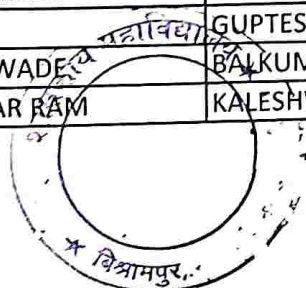 GUPTES
WADE BALKUM
AR RAM KALESH
महाविद्या
★ बिश्रामपुर